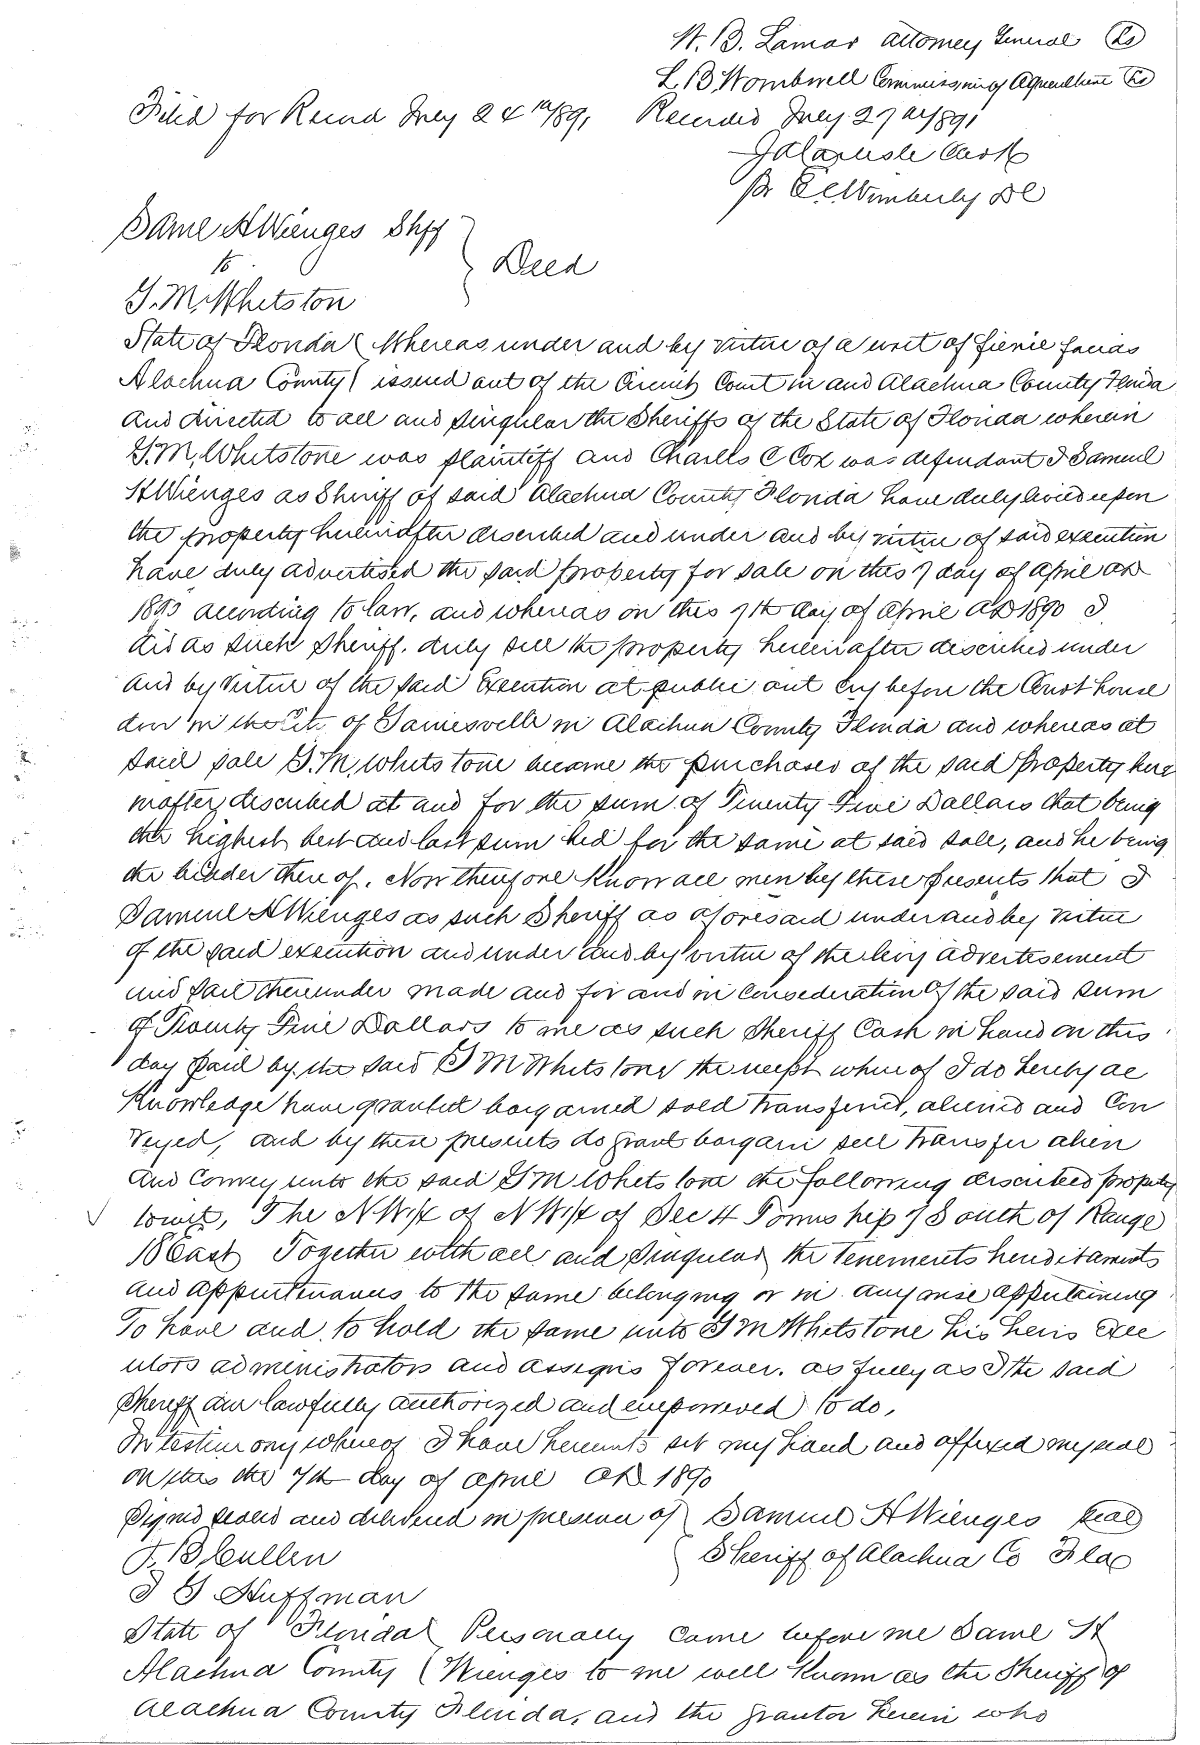 W. B. Lamar Attorney General Ls
L. B. Wombwell Commissinr of Agriculture Ls
Filed for Record July 24th 1891 Recorded July 27th 1891
J A Carlisle Clerk
Pr E. C. Wimberly DC
Saml H Wienges Shff
to } Deed
G. M. Whetston
State of Florida ( Whereas under and by virtue of a writ of fierie facias
Alachua County ( issued out of the Circuit Court in and Alachua County Florida
And directed to all and singular the Sheriffs of the State of Florida wherein
G. M. Whetstone was plaintiff and Charles C Cox was defendant I Samuel
H Wienges as Sheriff of said Alachua County Florida have duly levied upon
the property hereinafter described and under and by virtue of said execution
have duly advertised the said property for sale on this 7 day of April AD
1890 according to law, and whereas on this 7th day of April AD 1890 I
did as such Sheriff. duly sell the property hereinafter described under
and by virtue of the said Execution at public out cry before the Court house
door in the City of Gainesville in Alachua County Florida and whereas at
said sale G. M. Whetstone became the purchaser of the said property here
inafter described at and for the sum of Twenty Five Dollars that being
the highest best and last sum bid for the same at said sale, and he being
the bidder there of. Now therefore Know all men by these presents that I
Samuel H Wienges as such Sheriff as aforesaid under and by virtue
of the said execution and under and by virtue of the levy advertisement
and sale thereunder made and for and in Consideration of the said sum
of Twenty Five Dollars to me as such Sheriff Cash in hand on this
day paid by the said G M Whetstone the receipt where of I do hereby ac
Knowledge have granted bargained sold transferred, aliened and Con
veyed, and by these presents do grant bargain sell transfer alien
and Convey unto the said G M Whetstone the following described property
towit, The NW 1/4 of NW 1/4 of Sec 4 Township 7 South of Range
18 East Together with all and singular the tenements hereditaments
and appurtenances to the same belonging or in any wise appertaining
To have and to hold the same unto G M Whetstone his heirs Exec
utors administrators and assigns forever. as fully as I the said
Sheriff am lawfully authorized and empowered to do,
In testimony whereof I have hereunto set my hand and affixed my seal
on this the 7th day of April AD 1890
Signed sealed and delivered in presence of ( Samuel H Wienges seal
J. B Cullen ( Sheriff of Alachua Co Fla
I G Huffman
State of Florida ( Personally came before me Saml H
Alachua County ( Wienges to me well Known as the Sheriff of
Alachua County Florida, and the grantor herein who